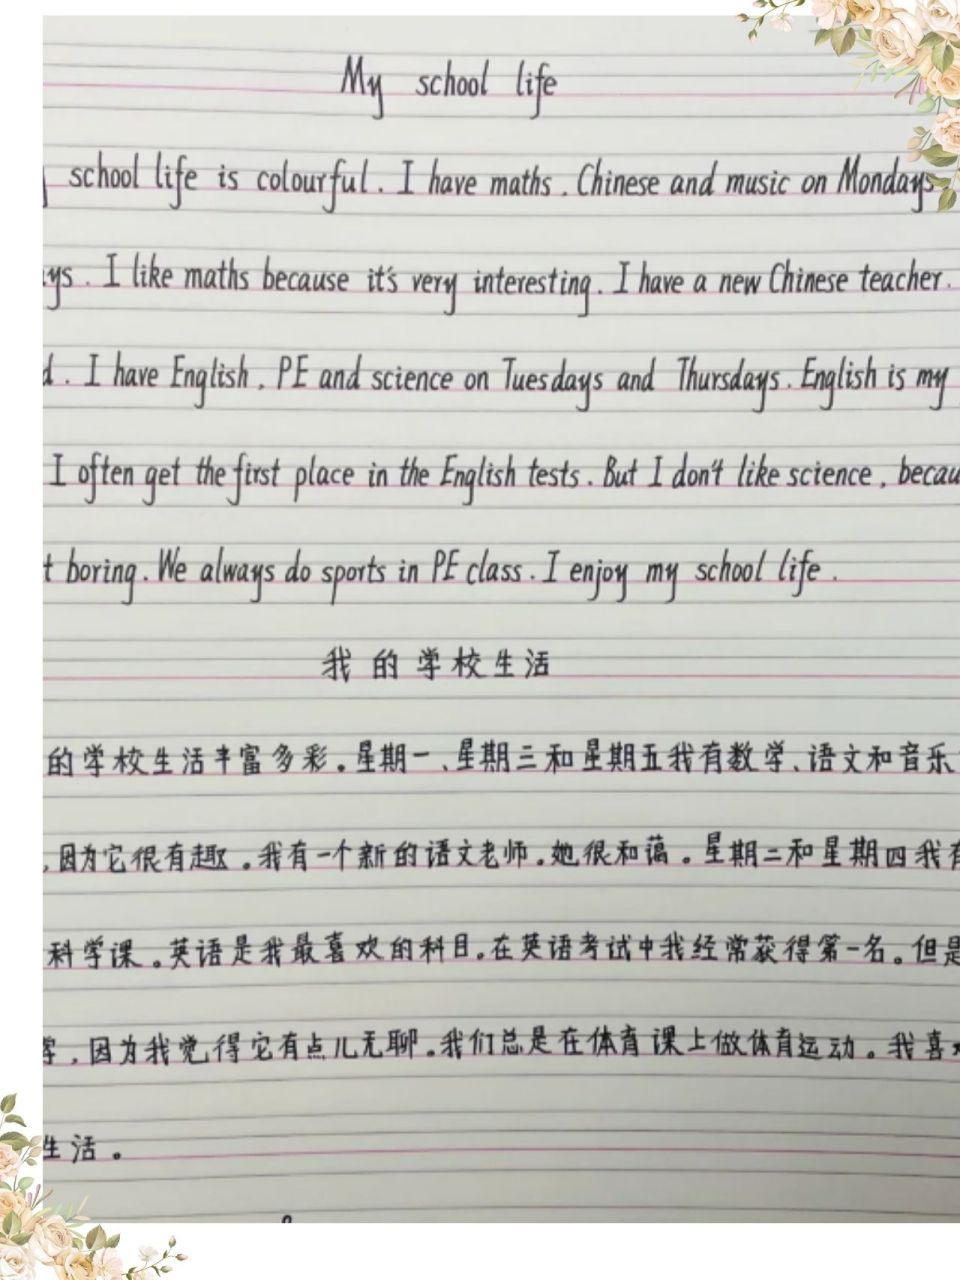 My school life
school life is colourful. I have maths, Chinese and music on Mondays
I like maths because it's very interesting. I have a new Chinese teacher.
I have English, PE and science on Tuesdays and Thursdays. English is my
I often get the first place in the English tests. But I don't like science,
boring. We always do sports in PE class. I enjoy my school life.
我的学校生活
的学校生活丰富多彩。星期一、星期三和星期五我有数学、语文和音乐
,因为它很有趣。我有一个新的语文老师。她很和蔼。星期二和星期四我有
科学课。英语是我最喜欢的科目。在英语考试中我经常获得第一名。但是
,因为我觉得它有点儿无聊。我们总是在体育课上做体育运动。我喜
生活。